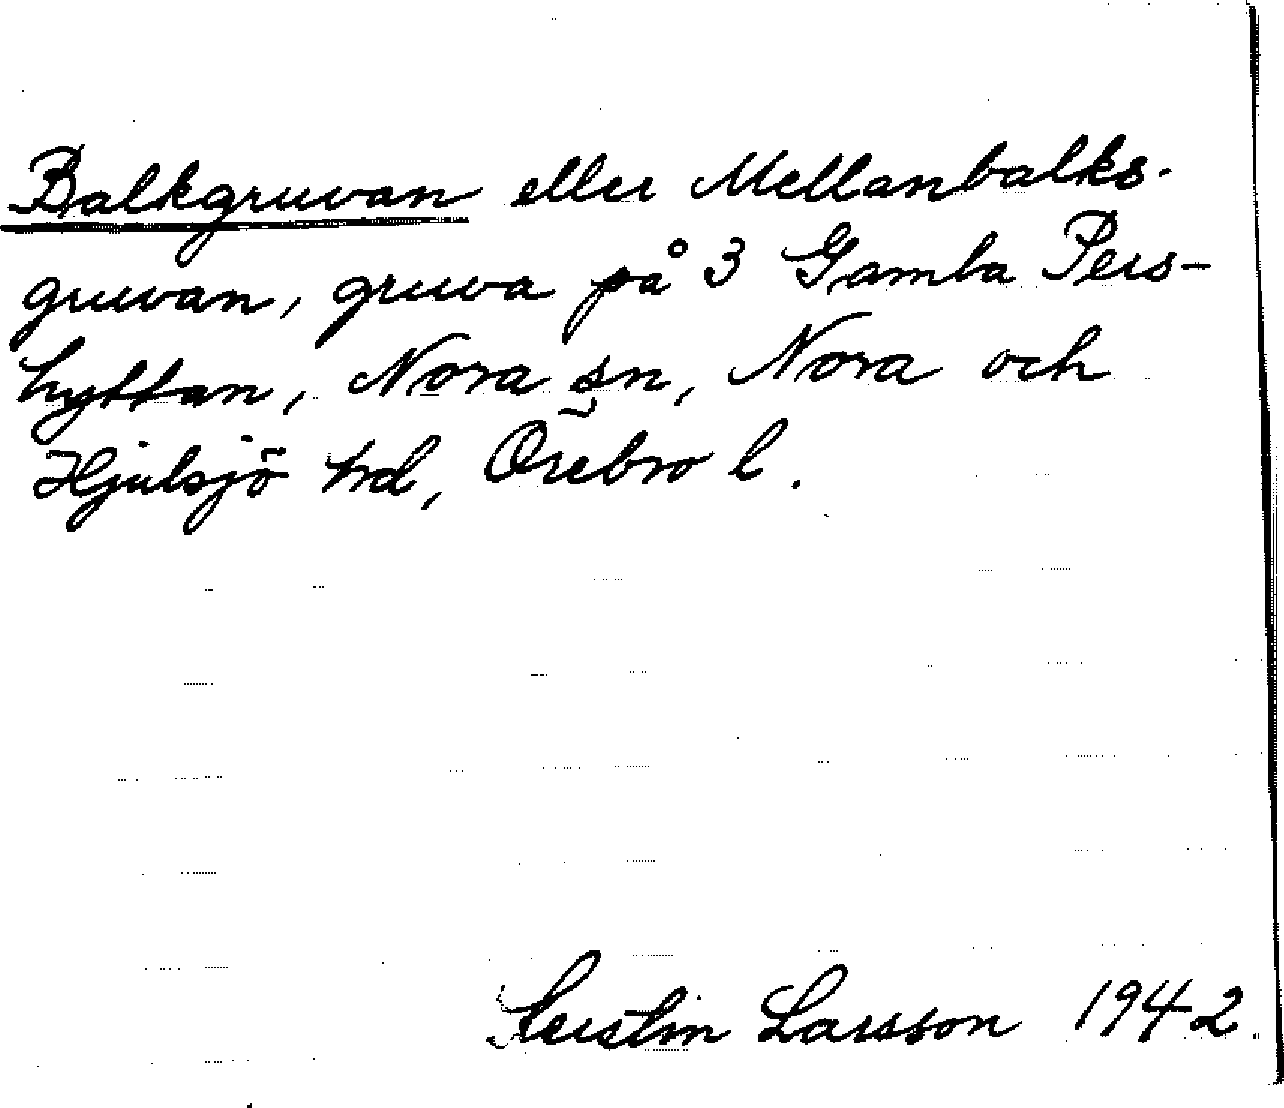 Balkgruvan eller Mellanbalks-
gruvan, gruva på 3 Gamla Pers-
hyttan, Nora sn, Nora och
Hjulsjö hrd, Örebro l.
Kerstin Larsson 1942